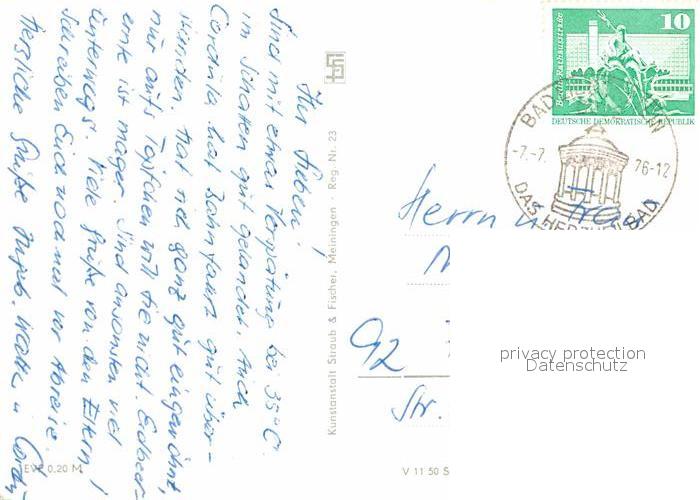 Ihr Lieben!
Sind mit etwas Verspätung bei 35°C
im Schatten gut gelandet. Auch
Cordula hat Bahnfahrt gut über-
wunden, hat sich ganz gut eingewöhnt,
nur aufs Töpfchen will sie nicht. Erdbeer-
ernte ist mager. Sind ansonsten viel
unterwegs. Viele Grüße von den Eltern!
Schreiben Euch noch mal vor Abreise.
Herzliche Grüße
EVP 0,20 M
Kunstanstalt Straub & Fischer, Meiningen · Reg. Nr. 23
V 11 50 S
10
Berlin, Rathausstraße
DEUTSCHE DEMOKRATISCHE REPUBLIK
BAD
-7.-7. 76-12
DAS HERZHEILBAD
Herrn u. Frau
92
Str.
privacy protection
Datenschutz